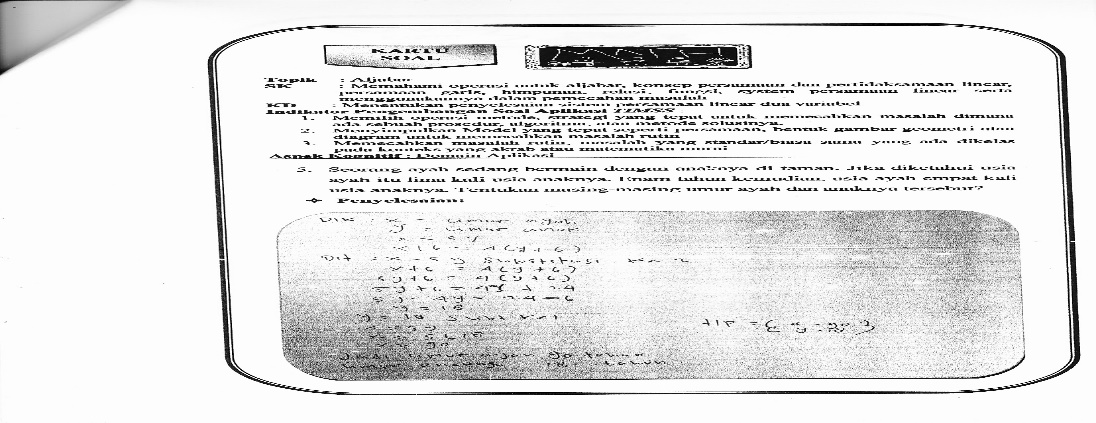 KARTU
SOAL
Topik : Aljabar
SK : Memahami operasi untuk aljabar, konsep persamaan dan pertidaksamaan linear,
persamaan garis, himpunan, relasi, fungsi, system persamaan linear serta
menggunakannya dalam pemecahan masalah
KD : Menentukan penyelesaian sistem persamaan linear dua variabel
Indikator Pengembangan Soal Aplikasi TIMSS
1. Memilih operasi metode, strategi yang tepat untuk memecahkan masalah dimana
ada sebuah prosedur, algoritma, atau metode solusinya.
2. Menyimpulkan Model yang tepat seperti persamaan, bentuk gambar geometri atau
diagram untuk memecahkan masalah rutin
3. Memecahkan masalah rutin, masalah yang standar/biasa sama yang ada dikelas
pada konteks yang akrab atau matematika murni
Aspek Kognitif : Domain Aplikasi
5. Seorang ayah sedang bermain dengan anaknya di taman. Jika diketahui usia
ayah itu lima kali usia anaknya. Enam tahun kemudian, usia ayah empat kali
usia anaknya. Tentukan masing-masing umur ayah dan anaknya tersebut?
❖ Penyelesaian:
Dik : x = umur ayah
y = umur anak
x = 5y
x+6 = 4(y+6)
Dit : x = 5y Substitusi
x+6 = 4(y+6)
5y+6 = 4(y+6)
5y+6 = 4y + 24
5y - 4y = 24 - 6
y = 18
y = 18
x = 5y
x = 90